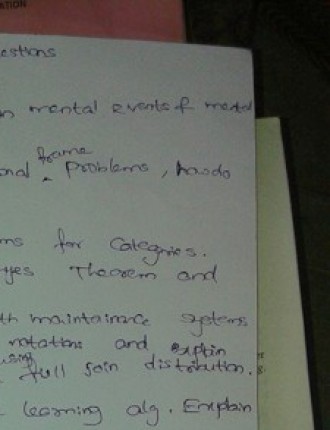 ATION
estions
n mental events & mental
frame
onal ^ Problems, how do
ms for Categries.
yes Theorem and
th maintainance systems
notations and explain
using
full join distribution.
learning alg. Explain